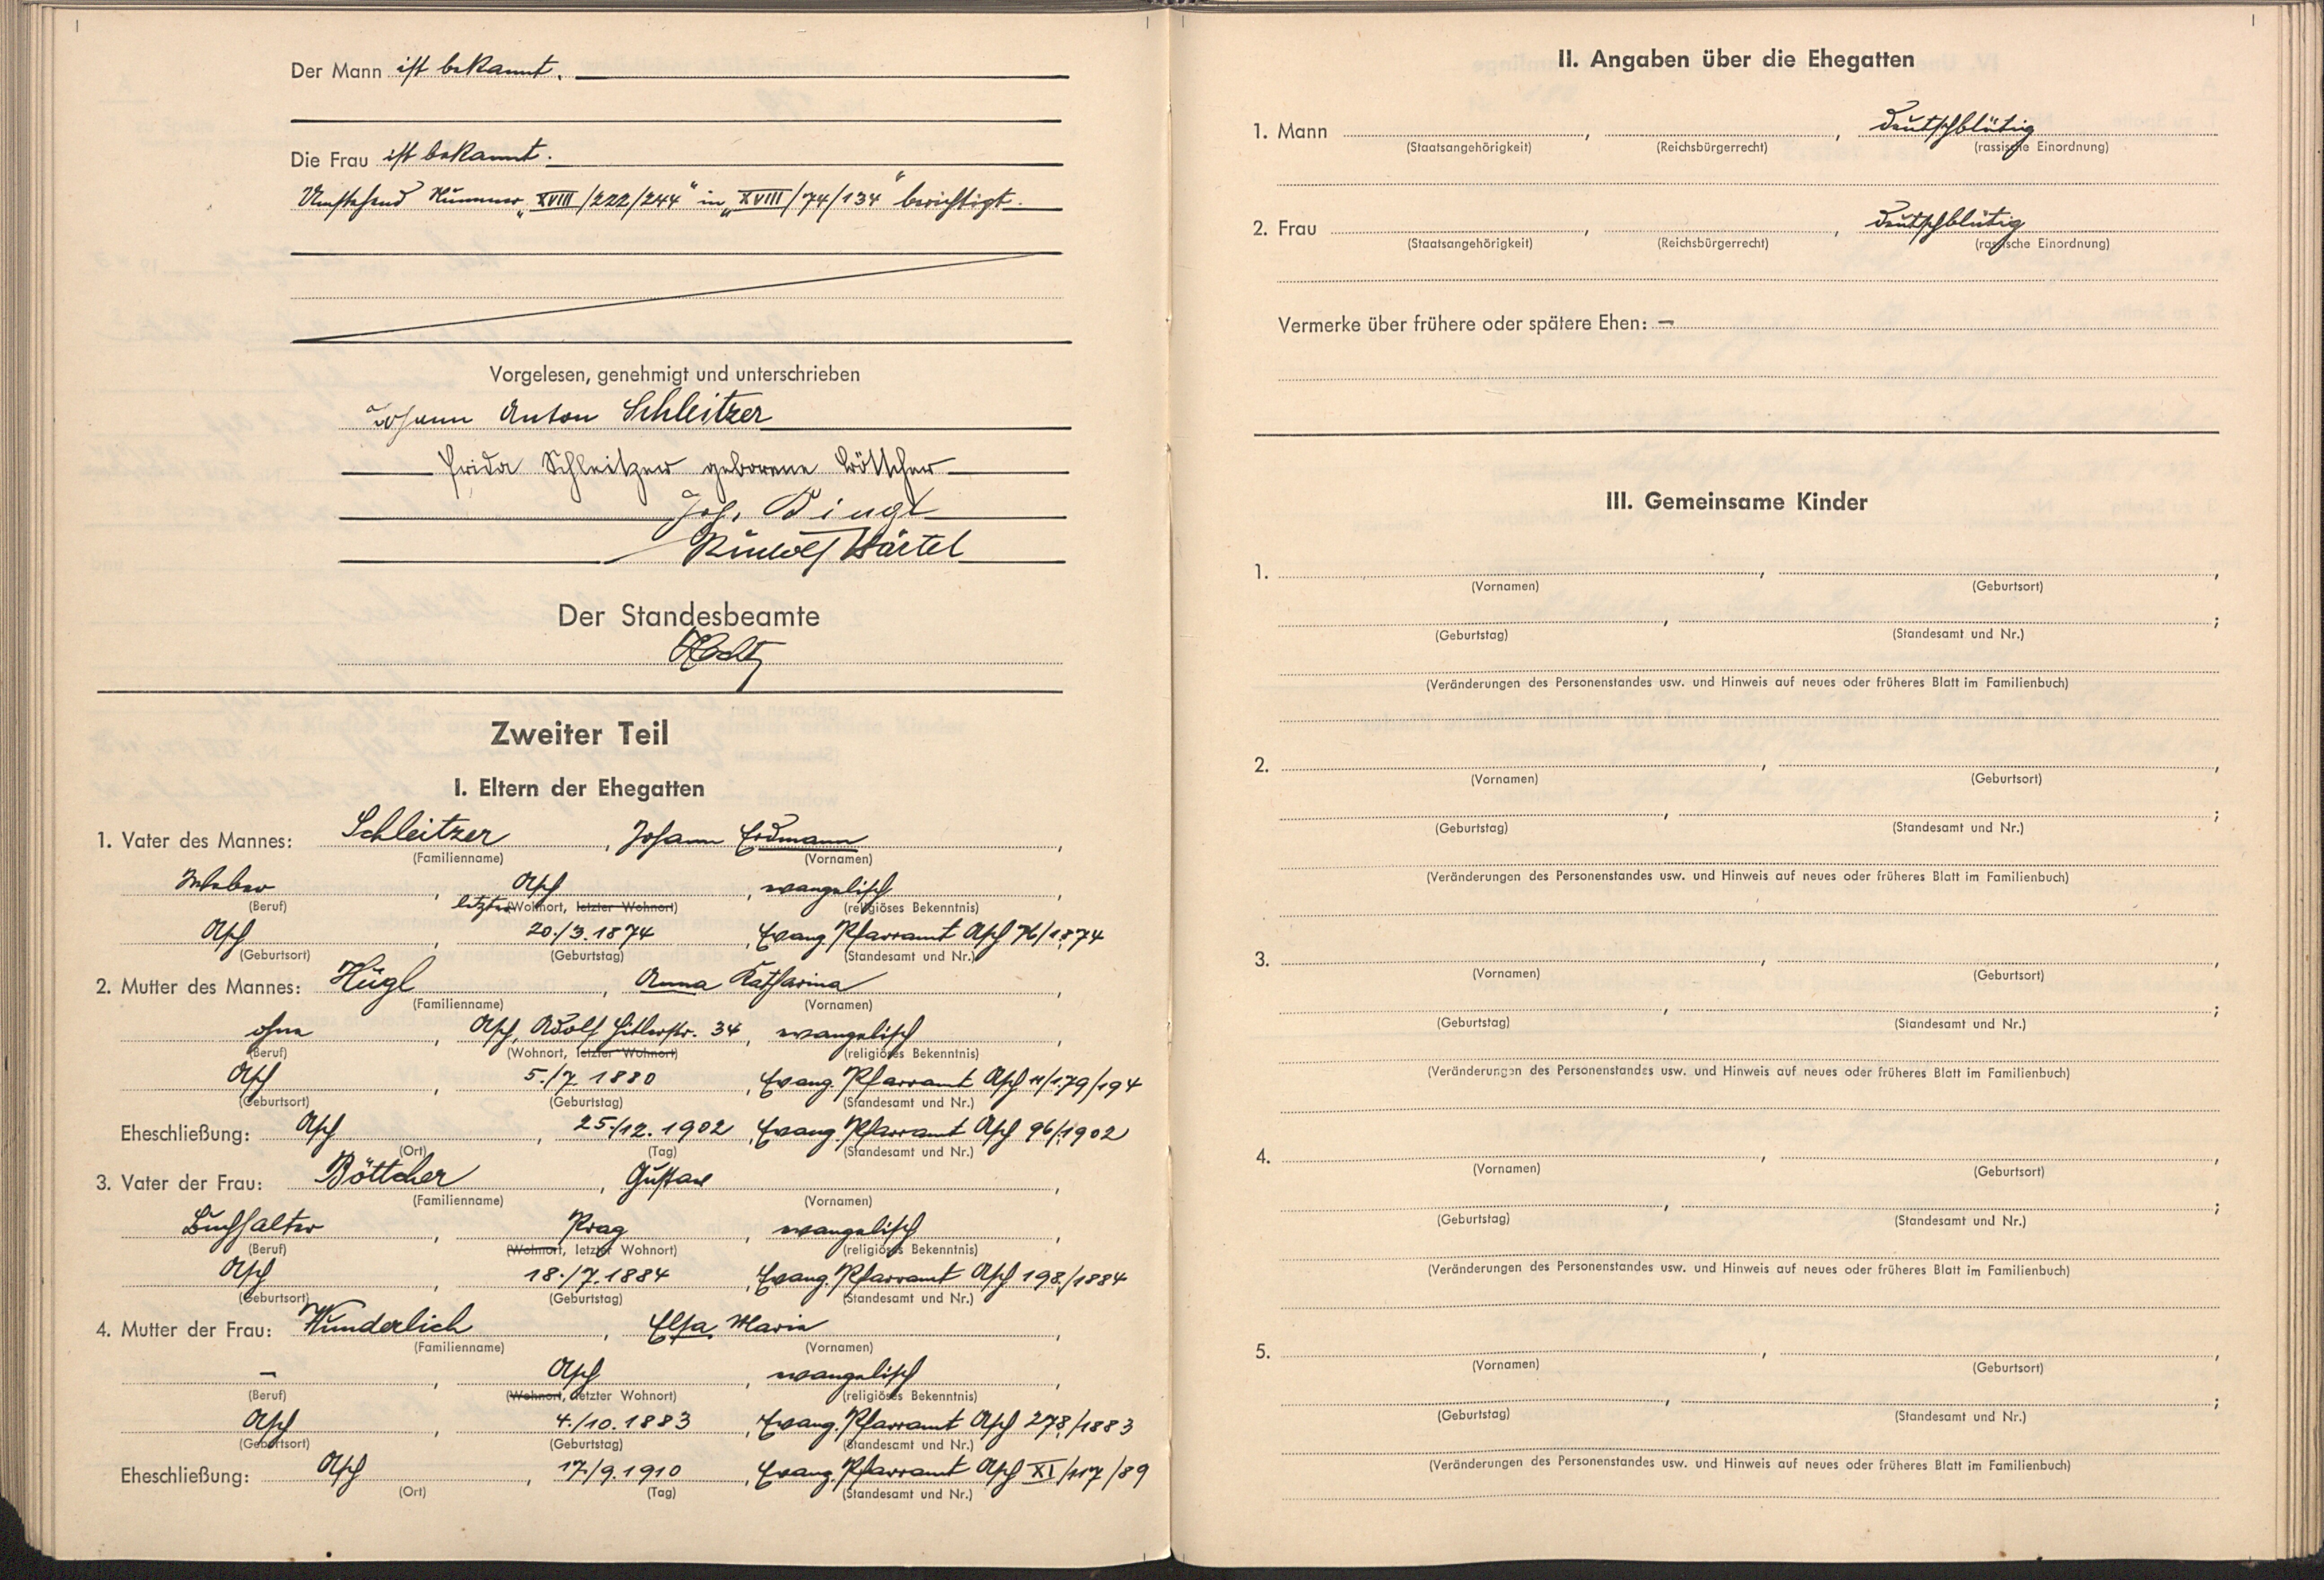 Der Mann ist bekannt.
Die Frau ist bekannt.
Umstehend Nummer „XVIII/222/244“ in „XVIII/74/134“ berichtigt.
Vorgelesen, genehmigt und unterschrieben
Johann Anton Schleitzer
Frida Schleitzer geborene Böttcher
Joh.
Rudolf Härtel
Der Standesbeamte
Zweiter Teil
I. Eltern der Ehegatten
1. Vater des Mannes: Schleitzer, Johann Erdmann,
(Familienname) (Vornamen)
Weber, Asch, evangelisch,
(Beruf) letzter (Wohnort, letzter Wohnort) (religiöses Bekenntnis)
Asch, 20./3.1874, Evang. Pfarramt Asch 76/1874
(Geburtsort) (Geburtstag) (Standesamt und Nr.)
2. Mutter des Mannes: Hügl, Anna Katharina,
(Familienname) (Vornamen)
ohne, Asch, Adolf Hitlerstr. 34, evangelisch,
(Beruf) (Wohnort, letzter Wohnort) (religiöses Bekenntnis)
Asch, 5./7.1880, Evang. Pfarramt Asch 11/179/194
(Geburtsort) (Geburtstag) (Standesamt und Nr.)
Eheschließung: Asch, 25./12.1902, Evang. Pfarramt Asch 96/1902
(Ort) (Tag) (Standesamt und Nr.)
3. Vater der Frau: Böttcher, Gustav,
(Familienname) (Vornamen)
Buchhalter, Prag, evangelisch,
(Beruf) (Wohnort, letzter Wohnort) (religiöses Bekenntnis)
Asch, 18./7.1884, Evang. Pfarramt Asch 198/1884
(Geburtsort) (Geburtstag) (Standesamt und Nr.)
4. Mutter der Frau: Wunderlich, Elsa Maria,
(Familienname) (Vornamen)
–, Asch, evangelisch,
(Beruf) (Wohnort, letzter Wohnort) (religiöses Bekenntnis)
Asch, 4./10.1883, Evang. Pfarramt Asch 278/1883
(Geburtsort) (Geburtstag) (Standesamt und Nr.)
Eheschließung: Asch, 17./9.1910, Evang. Pfarramt Asch XI/117/89
(Ort) (Tag) (Standesamt und Nr.)
II. Angaben über die Ehegatten
1. Mann , , deutschblütig
(Staatsangehörigkeit) (Reichsbürgerrecht) (rassische Einordnung)
2. Frau , , deutschblütig
(Staatsangehörigkeit) (Reichsbürgerrecht) (rassische Einordnung)
Vermerke über frühere oder spätere Ehen: –
III. Gemeinsame Kinder
1. , ,
(Vornamen) (Geburtsort)
, ;
(Geburtstag) (Standesamt und Nr.)
(Veränderungen des Personenstandes usw. und Hinweis auf neues oder früheres Blatt im Familienbuch)
2. , ,
(Vornamen) (Geburtsort)
, ;
(Geburtstag) (Standesamt und Nr.)
(Veränderungen des Personenstandes usw. und Hinweis auf neues oder früheres Blatt im Familienbuch)
3. , ,
(Vornamen) (Geburtsort)
, ;
(Geburtstag) (Standesamt und Nr.)
(Veränderungen des Personenstandes usw. und Hinweis auf neues oder früheres Blatt im Familienbuch)
4. , ,
(Vornamen) (Geburtsort)
, ;
(Geburtstag) (Standesamt und Nr.)
(Veränderungen des Personenstandes usw. und Hinweis auf neues oder früheres Blatt im Familienbuch)
5. , ,
(Vornamen) (Geburtsort)
, ;
(Geburtstag) (Standesamt und Nr.)
(Veränderungen des Personenstandes usw. und Hinweis auf neues oder früheres Blatt im Familienbuch)